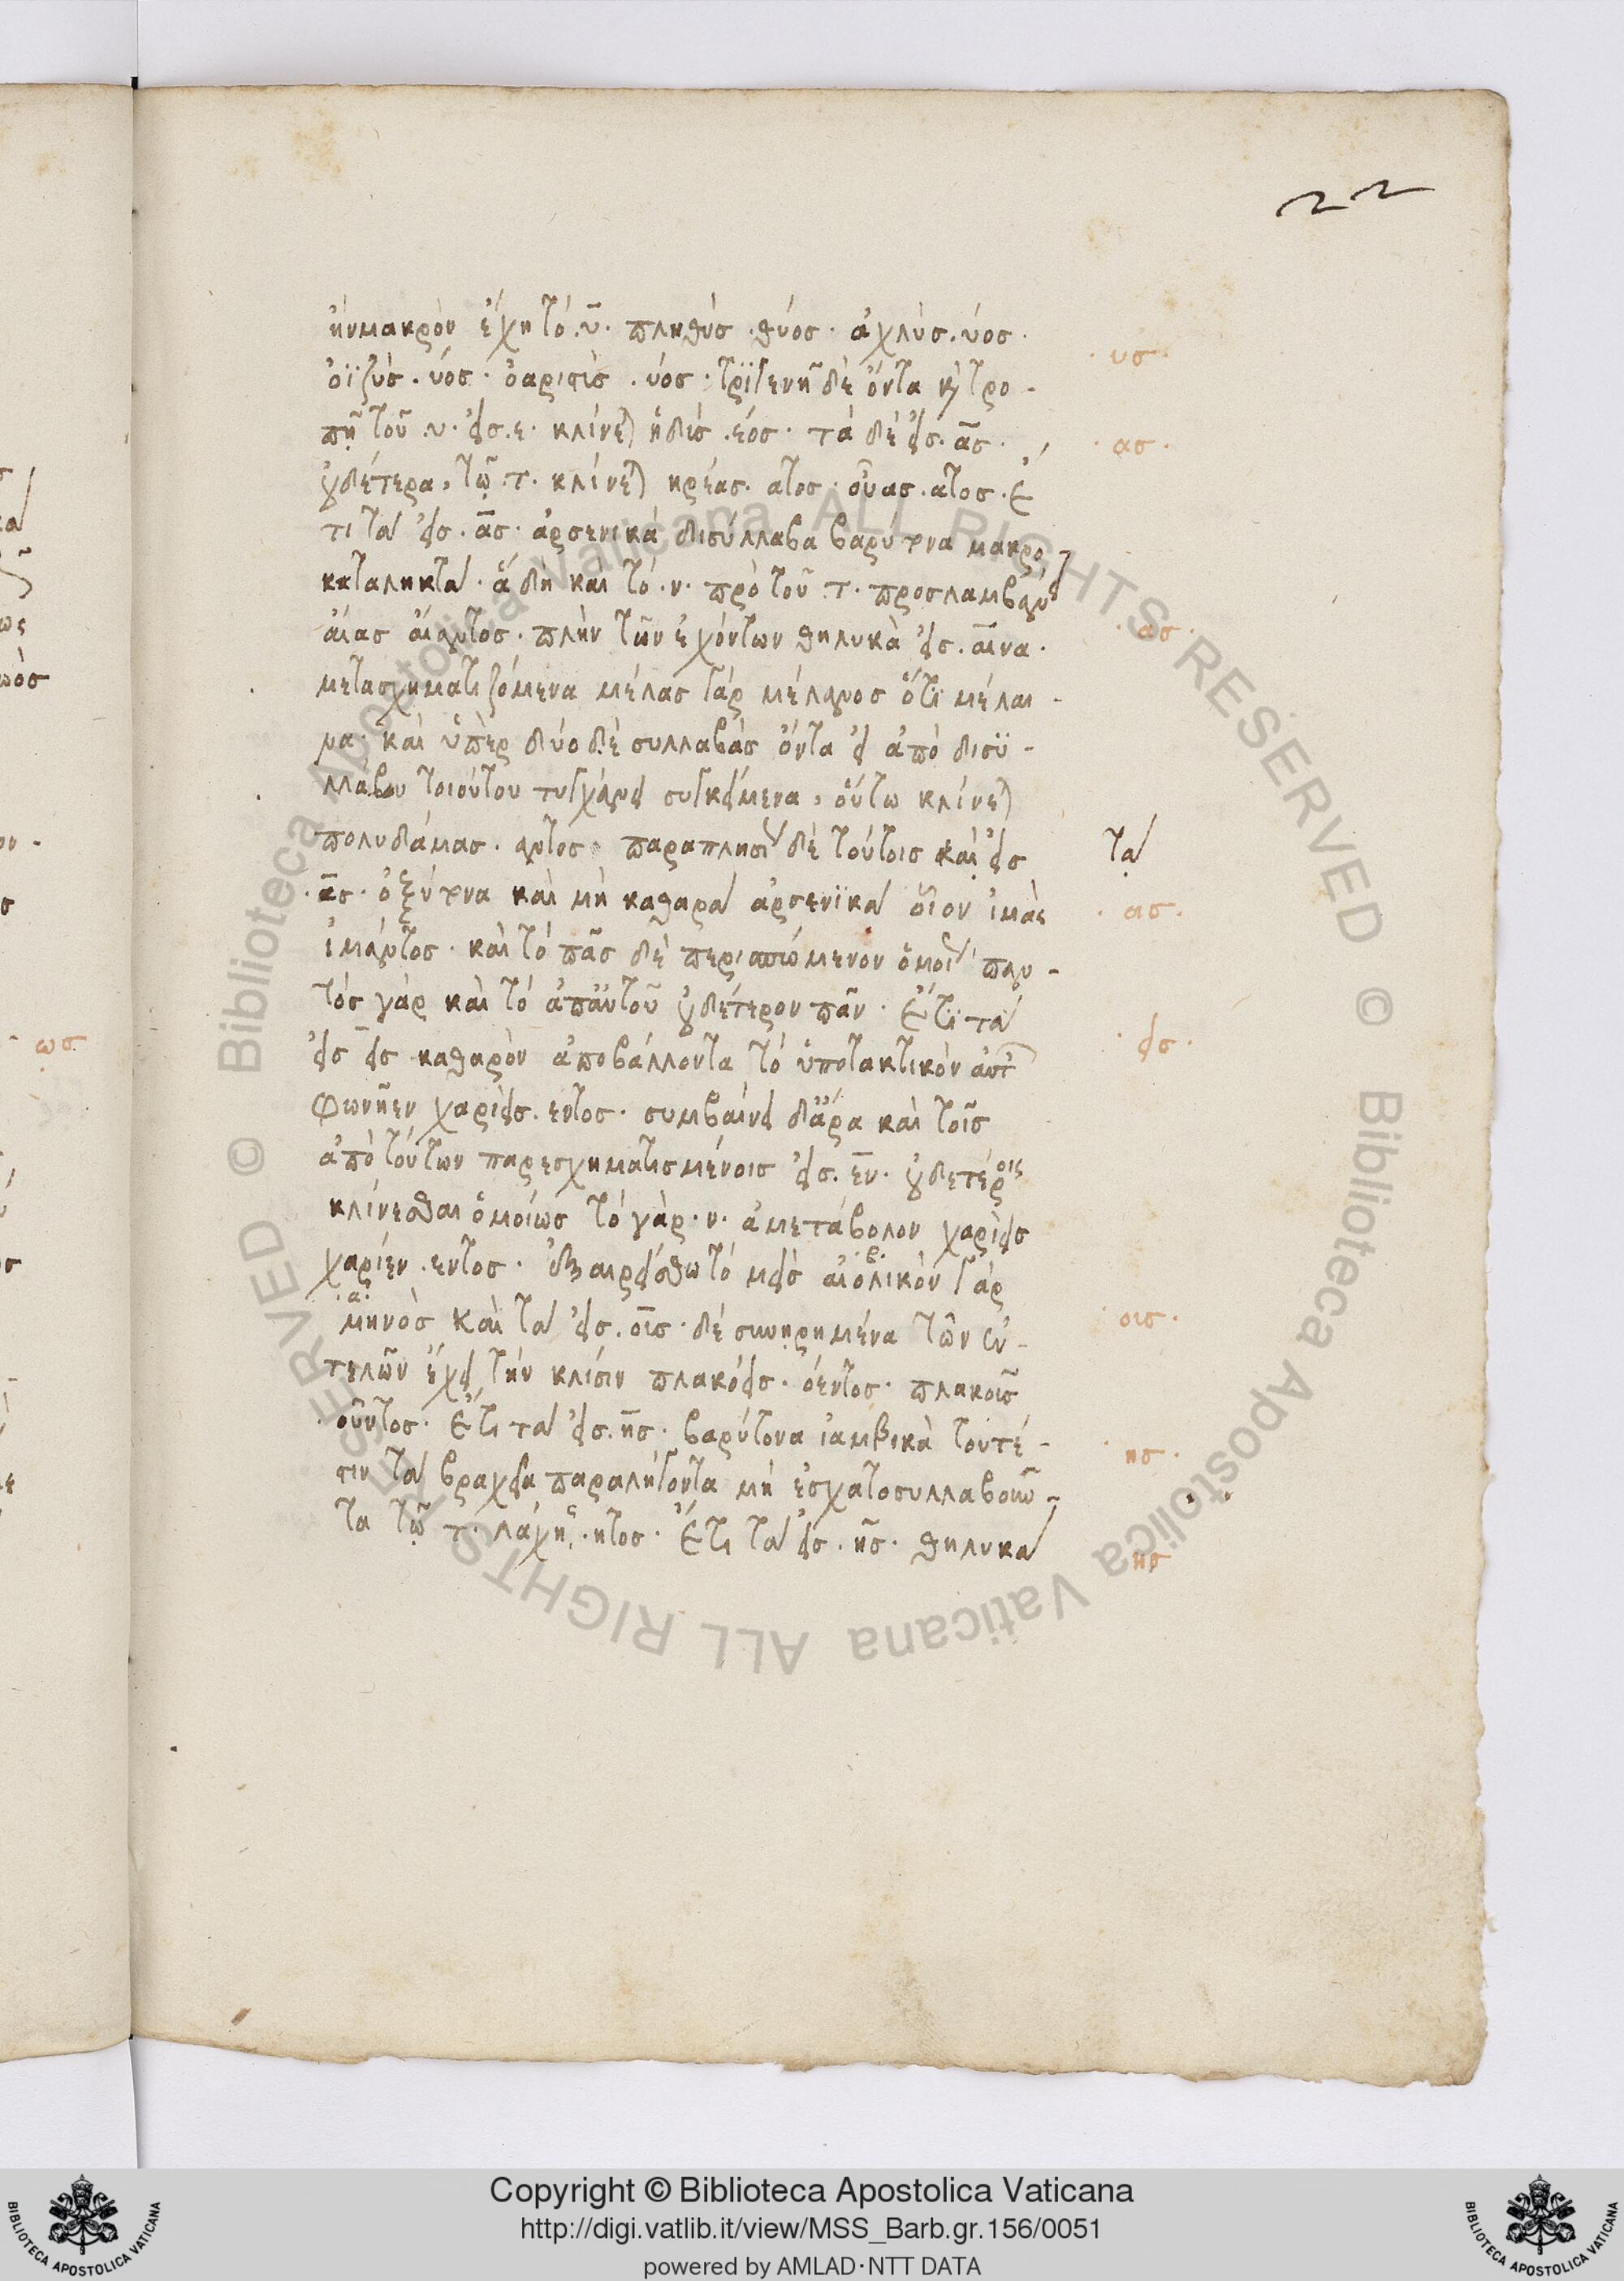 22
ἤν μακρὸν ἔχη τό .υ̅. πληθύσ .θύοσ. ἀχλύσ .ύοσ.
ὀϊζύσ .ύοσ. ὀαριστὺσ .ύοσ. τριγενῆ δὲ ὄντα κὴ τρο-
πῇ τοῦ .υ. εἰσ .ε. κλίνεται ἡδύσ .έοσ. τὰ δὲ εἰσ .α̅σ̅.
οὐδέτερα, τῷ .τ. κλίνεται κρέασ .ατοσ. οὖασ .ατοσ. ἔ
τι τὰ εἰσ .α̅σ̅. ἀρσενικὰ δισύλλαβα βαρύτονα μακρο
κατάληκτα. ἃ δὴ καὶ τό .ν. πρὸ τοῦ .τ. προσλαμβάνει
αἴασ αἴαντοσ. πλὴν τῶν ἐχόντων θηλυκὰ εἰσ .αινα.
μετασχηματιζόμενα μέλασ γάρ μέλανοσ ὅτι μέλαι-
να. καὶ ὑπὲρ δύο δὲ συλλαβὰσ ὄντα εἰ ἀπὸ δισυ-
λλάβου τοιούτου τυγχάνει συγκείμενα, οὕτω κλίνεται
πολυδάμασ .αντοσ. παραπλησίωσ δὲ τούτοισ καὶ εἰσ
.α̅σ̅. ὀξύτονα καὶ μὴ καθαρὰ ἀρσενικὰ οἷον ἱμὰσ
ἱμάντοσ. καὶ τό πᾶσ δὲ περισπώμενον ὁμοίωσ παν-
τόσ γάρ καὶ τό ἀπ' αὐτοῦ οὐδέτερον πᾶν. ἔτι τὰ
εἰσ εισ καθαρὸν ἀποβάλλοντα τό ὑποτακτικὸν αὐτ
φωνῆεν χαρίεισ .εντοσ. συμβαίνει δ' ἄρα καὶ τοῖσ
ἀπὸ τούτων παρεσχηματισμένοισ εἰσ .ε̅ν̅. οὐδετέροισ
κλίνεσθαι ὁμοίωσ τό γὰρ .ν. ἀμετάβολον χαρίεισ
χαρίεν .εντοσ. ἐξαιρείσθω τό μεὶσ αἰολικὸν γάρ
μηνὸσ καὶ τὰ εἰσ .ο̅ι̅σ̅. δέ συνῃρημένα τῶν ἐν-
τελῶν ἔχει τὴν κλίσιν πλακόεισ .όεντοσ. πλακοῦσ
.οῦντοσ. ἔτι τὰ εἰσ .η̅σ̅. βαρύτονα ἰαμβικὰ τουτέ-
στιν τὰ βραχεία παραλήγοντα μὴ ἐσχατοσυλλαβοῦν-
τα τῷ .τ. λάχησ .ητοσ. ἔτι τὰ εἰσ .η̅σ̅. θηλυκὰ
.υσ.
.ασ.
.ασ.
τὰ
.ασ.
.εισ.
.οισ.
.ησ.
ησ
ωσ
Copyright © Biblioteca Apostolica Vaticana
http://digi.vatlib.it/view/MSS_Barb.gr.156/0051
powered by AMLAD·NTT DATA